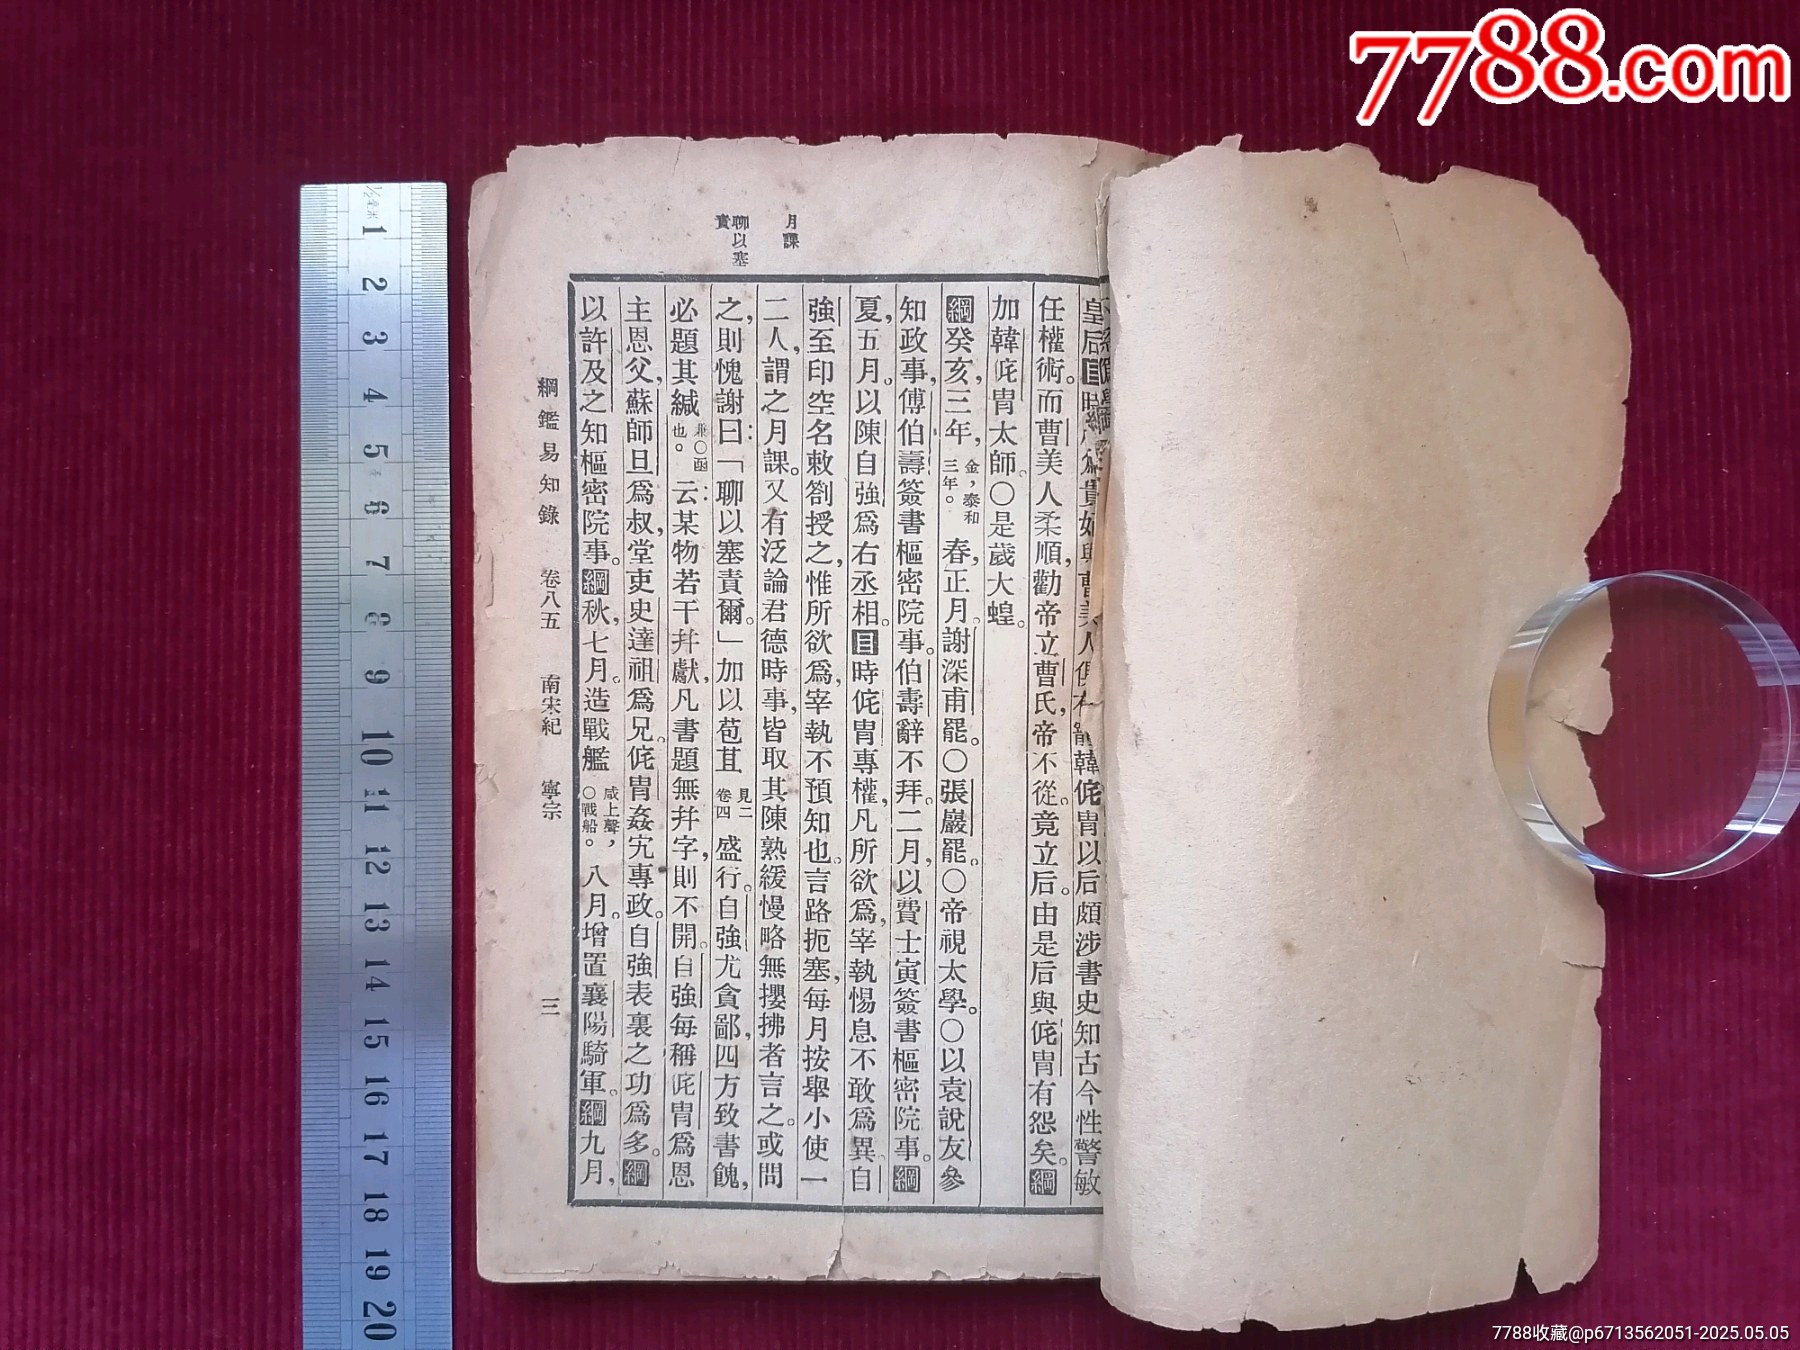 7788.com
月課
聊以塞
責
皇后目時貴妃與曹美人俱有寵韓侂胄以后頗涉書史知古今性警敏
任權術。而曹美人柔順，勸帝立曹氏，帝不從。竟立后。由是后與侂胄有怨矣。綱
加韓侂胄太師。〇是歲大蝗。
綱癸亥，三年，金，泰和三年。春，正月。謝深甫罷。〇張巖罷。〇帝視太學。〇以袁說友參
知政事，傅伯壽簽書樞密院事。伯壽辭不拜。二月，以費士寅簽書樞密院事。綱
夏，五月。以陳自強爲右丞相。目時侂胄專權，凡所欲爲，宰執惕息不敢爲異。自
強至印空名敕劄授之，惟所欲爲，宰執不預知也。言路扼塞，每月按舉小使一
二人，謂之月課。又有泛論君德時事，皆取其陳熟緩慢略無攖拂者言之。或問
之，則愧謝曰：「聊以塞責爾。」加以苞苴見二卷四盛行。自強尤貪鄙，四方致書餽，
必題其緘兼〇函也。云：某物若干并獻，凡書題無并字，則不開。自強每稱侂胄爲恩
主恩父，蘇師旦爲叔，堂吏史達祖爲兄。侂胄姦宄專政。自強表裏之功爲多。綱
以許及之知樞密院事。綱秋，七月。造戰艦咸上聲，〇戰船。八月。增置襄陽騎軍。綱九月，
綱鑑易知錄 卷八五 南宋紀 寧宗 三
1/2毫米
1
2
3
4
5
6
7
8
9
10
11
12
13
14
15
16
17
18
19
20
7788收藏@p6713562051-2025.05.05